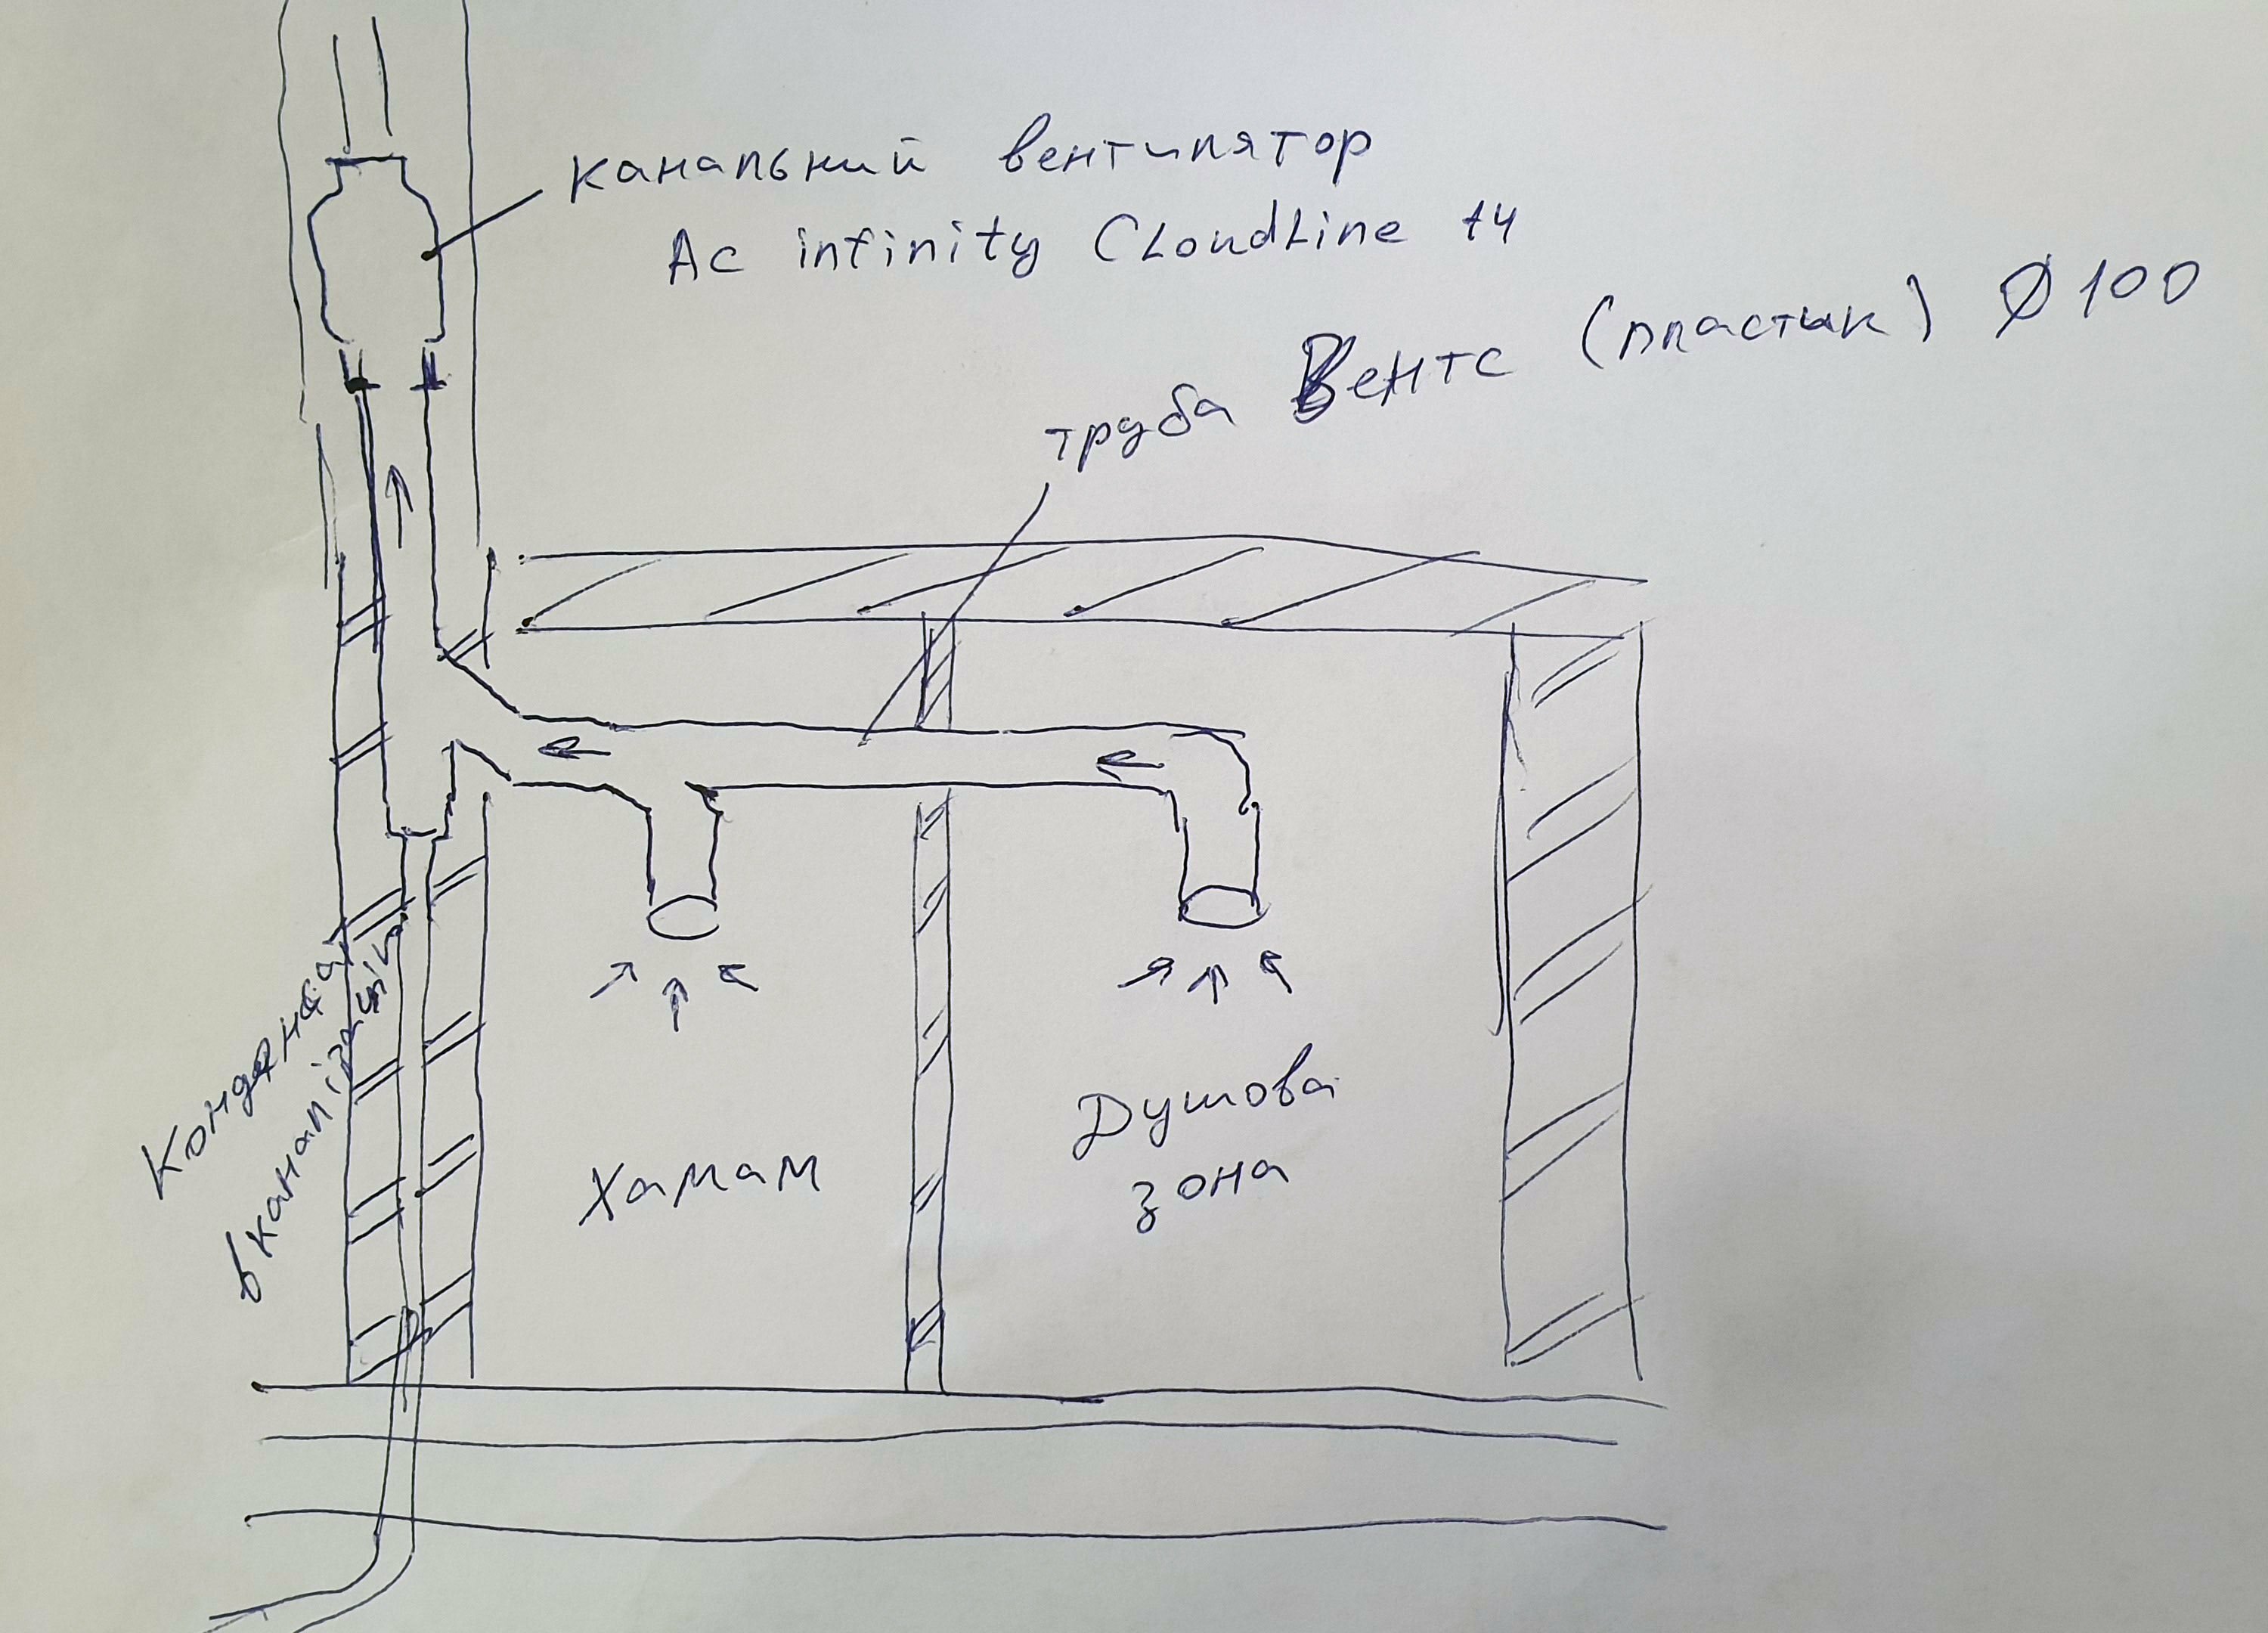 канальний вентилятор
Ac infinity CLoudLine t4
труба Вентс (пластык) Ø 100
Конденсат
в каналізацію
Хамам
Душова
зона